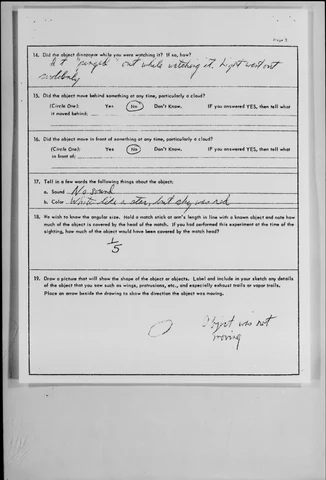 Page 3
14. Did the object disappear while you were watching it? If so, how?
it "pinged" out while watching it. Light went out
suddenly
15. Did the object move behind something at any time, particularly a cloud?
(Circle One): Yes No Don't Know. IF you ANSWERED YES, then tell what
it moved behind:
16. Did the object move in front of something at any time, particularly a cloud?
(Circle One): Yes No Don't Know. IF you ANSWERED YES, then tell what
in front of:
17. Tell in a few words the following things about the object:
a. Sound No sound
b. Color White like a star, but sky was red
18. We wish to know the angular size. Hold a match stick at arm's length in line with a known object and note how
much of the object is covered by the head of the match. If you had performed this experiment at the time of the
sighting, how much of the object would have been covered by the match head?
1/5
19. Draw a picture that will show the shape of the object or objects. Label and include in your sketch any details
of the object that you saw such as wings, protrusions, etc., and especially exhaust trails or vapor trails.
Place an arrow beside the drawing to show the direction the object was moving.
Object was not
moving